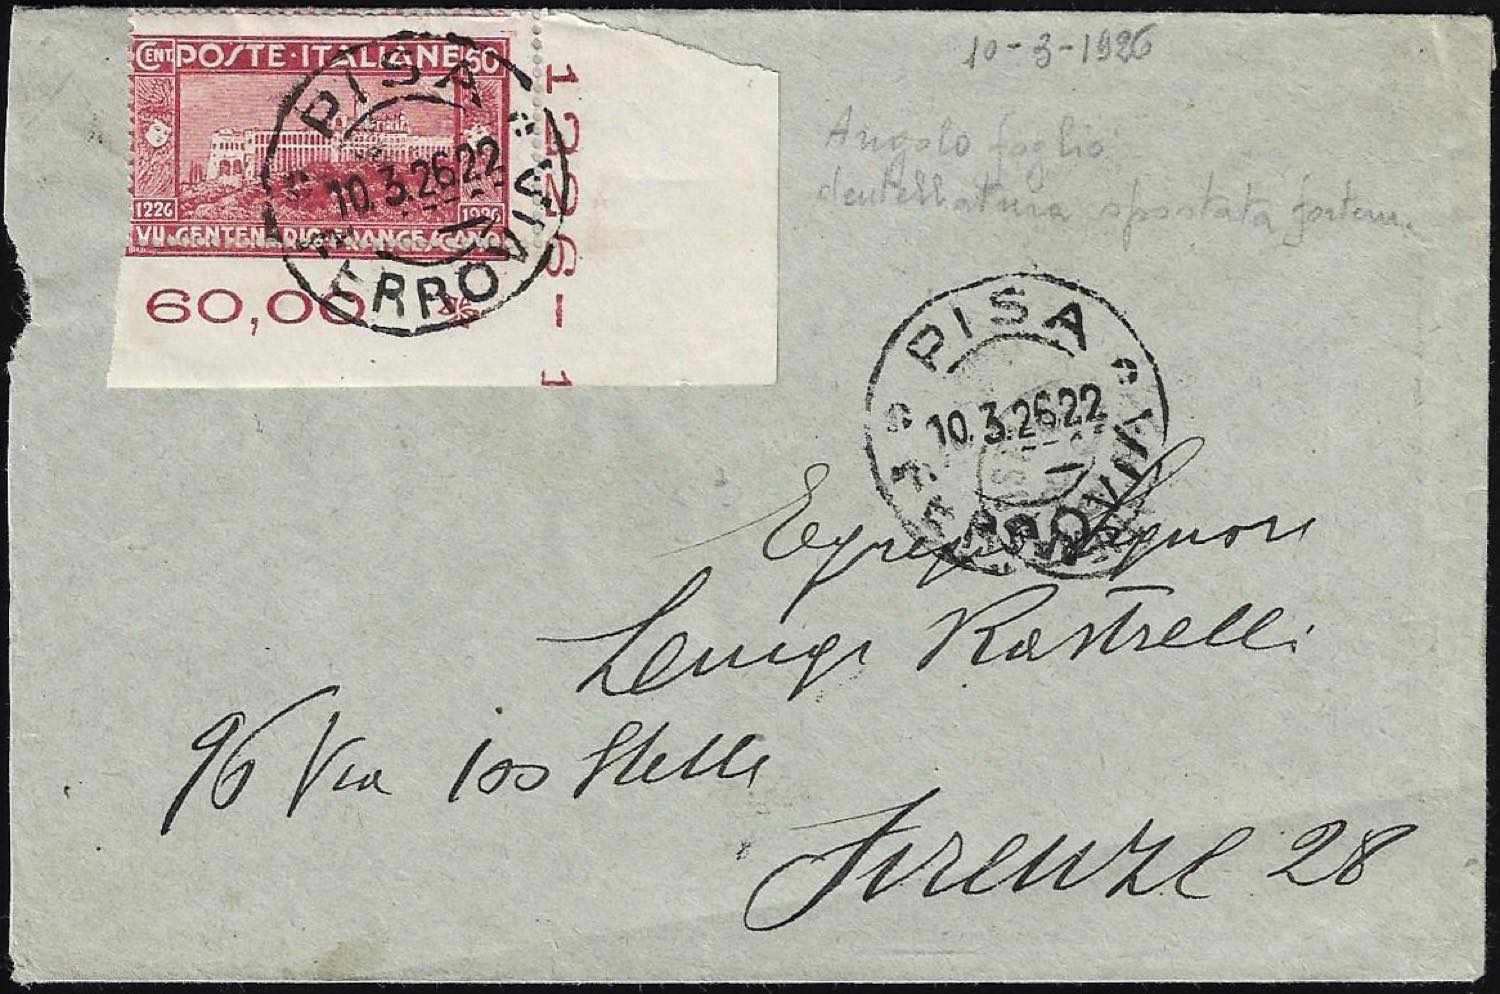 CENT. POSTE·ITALIANE 60
1226 1926
VII CENTENARIO FRANCESCANO
60,00
1226-1
PISA
10.3.26 22
FERROVIA
10-3-1926
Angolo foglio
dentellatura spostata
PISA
10.3.26 22
FERROVIA
Egregio Signore
Luigi Rastrelli
96 Via Stelle
Firenze 28